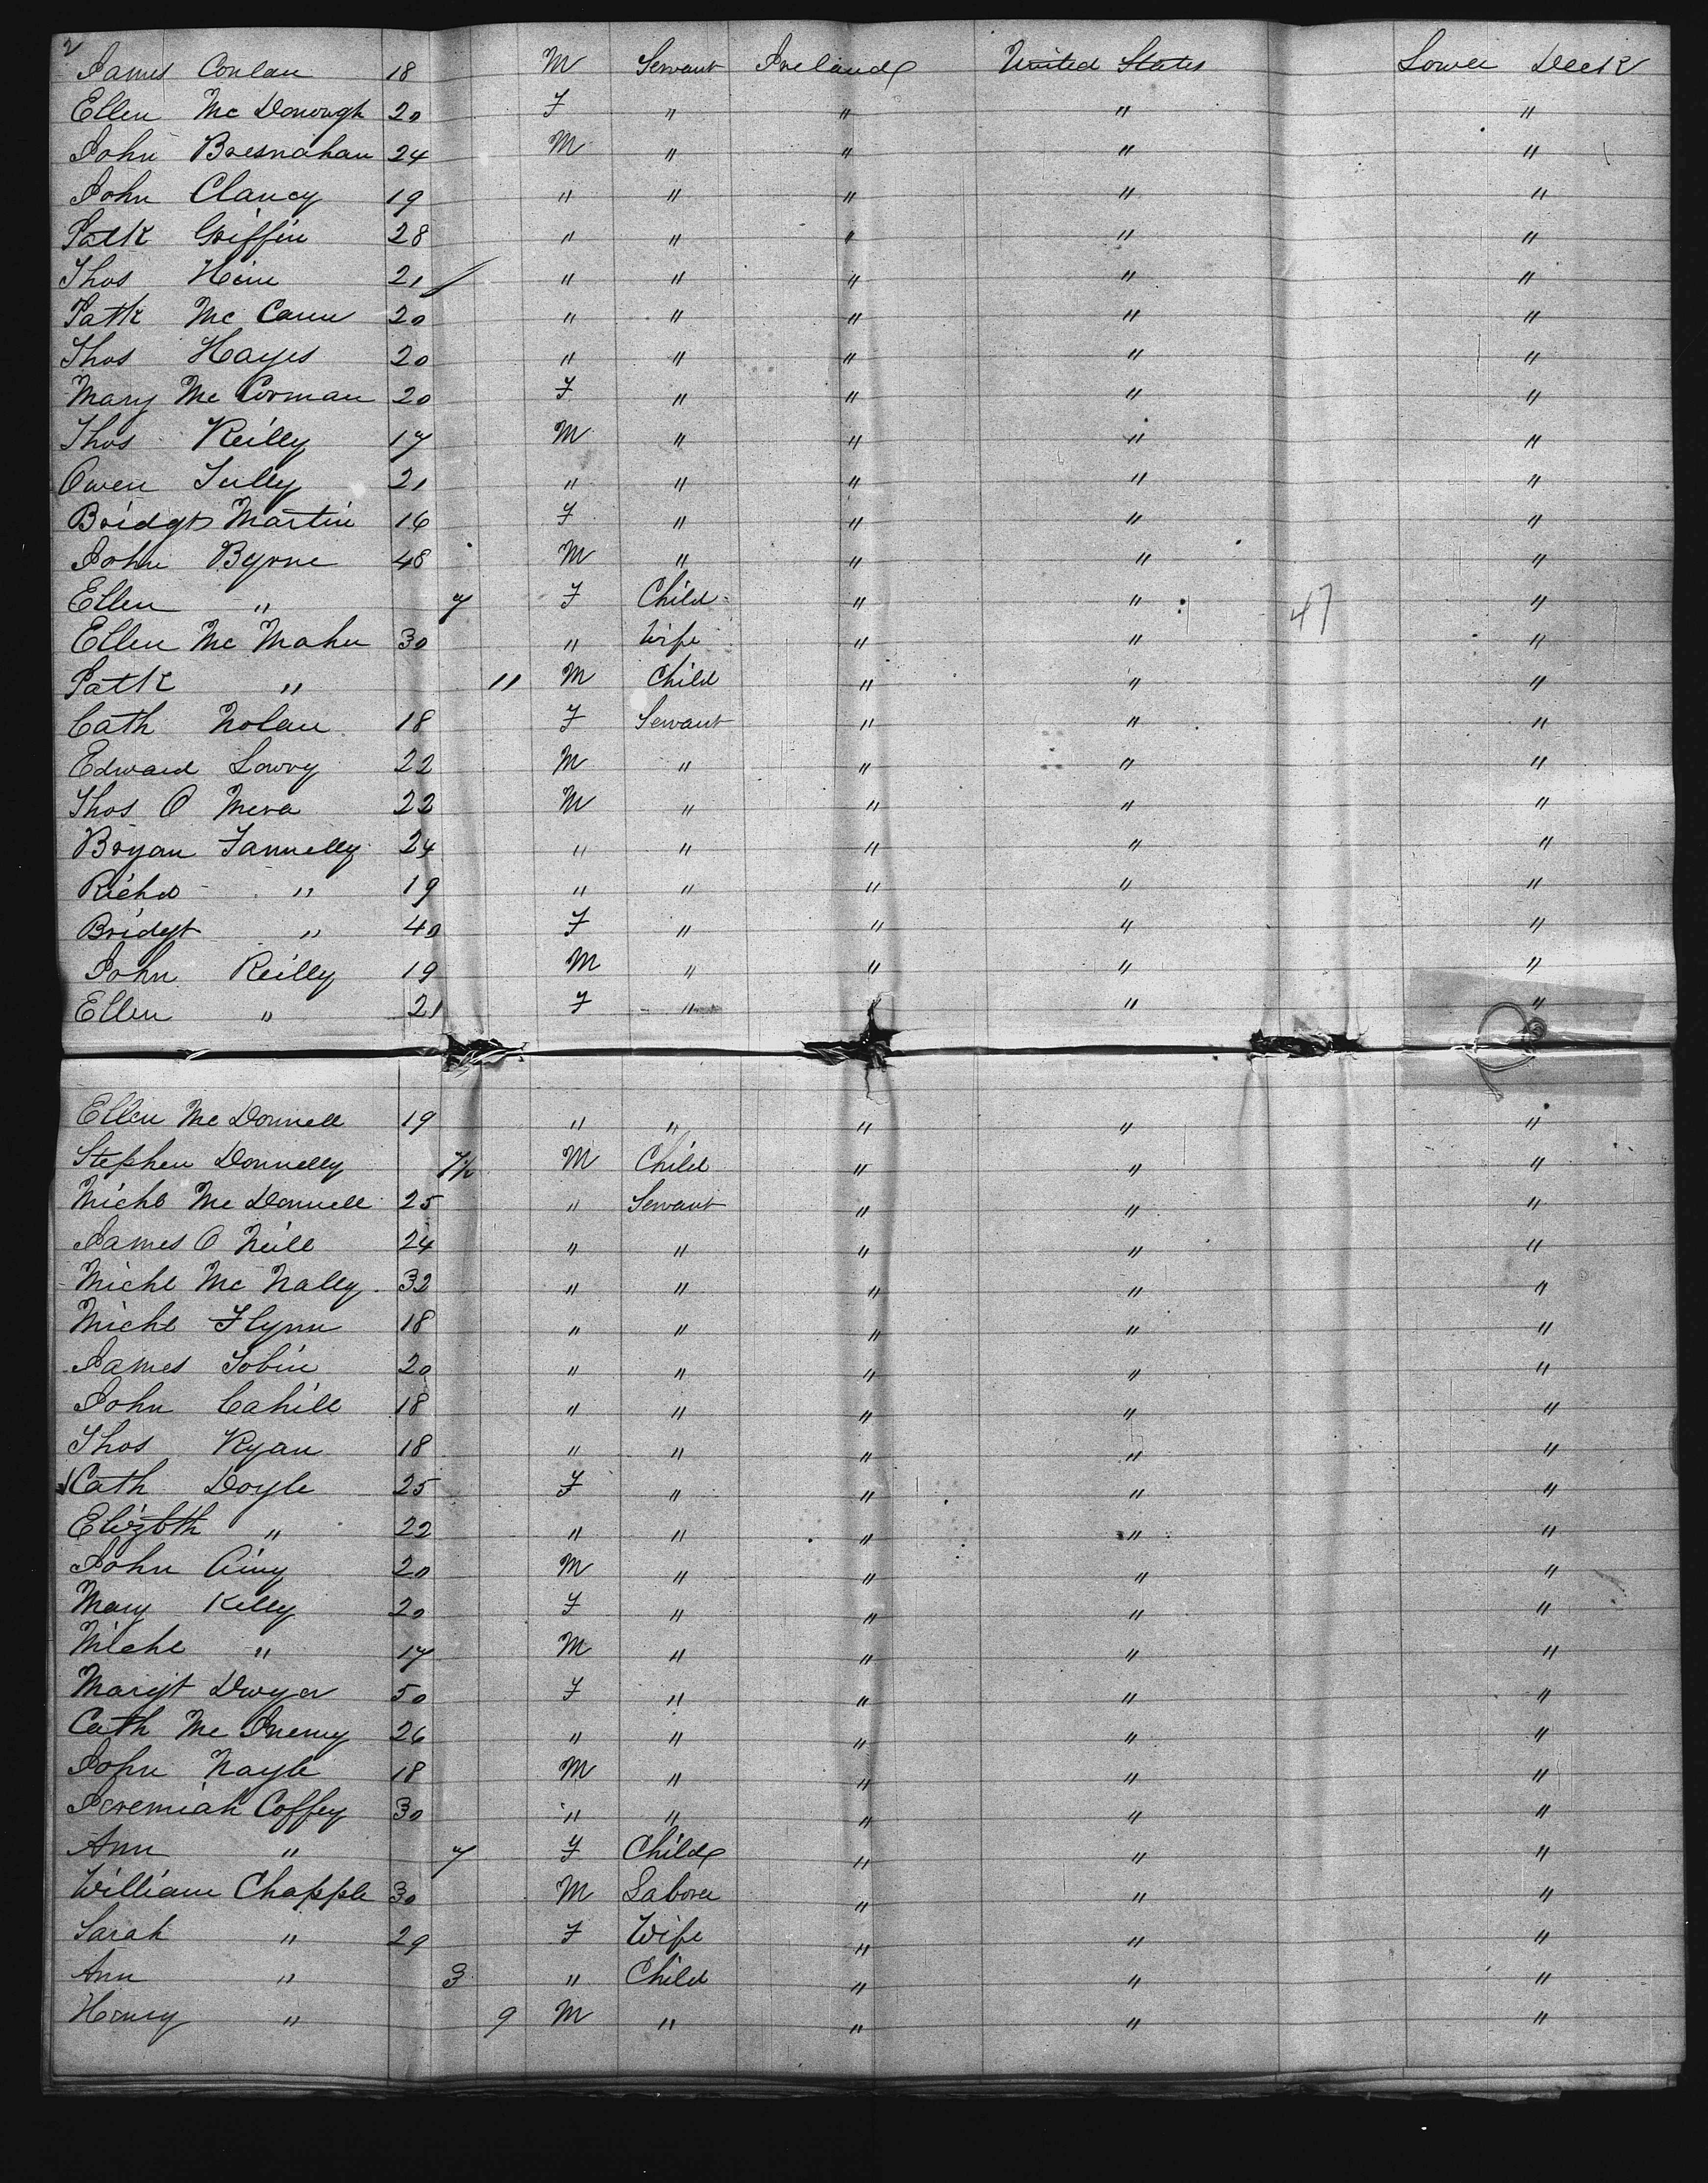 2
James Conlan 18 M Servant Ireland United States Lower Deck
Ellen Mc Donough 20 F " " " "
John Bresnahan 24 M " " " "
John Clancy 19 " " " " "
Patk Griffin 28 " " " " "
Thos 21 " " " " "
Patk Mc Cann 20 " " " " "
Thos Hayes 20 " " " " "
Mary Mc Corman 20 F " " " "
Thos Reilly 17 M " " " "
Owen Tully 21 " " " " "
Bridgt Martin 16 F " " " "
John Byrne 48 M " " " "
Ellen " 7 F Child " " 47 "
Ellen Mc Mahn 30 " Wife " " "
Patk " 11 M Child " " "
Cath Nolan 18 F Servant " " "
Edward Lowry 22 M " " " "
Thos O Mera 22 M " " " "
Bryan Fannelly 24 " " " " "
Richd " 19 " " " " "
Bridgt " 40 F " " " "
John Reilly 19 M " " " "
Ellen " 21 F " " "
Ellen Mc Donnell 19 " " " " "
Stephen Donnelly M Child " " "
Michl Mc Donnell 25 " Servant " " "
James O Neill 24 " " " " "
Michl Mc Nally 32 " " " " "
Michl Flynn 18 " " " " "
James Tobin 20 " " " " "
John Cahill 18 " " " " "
Thos Ryan 18 " " " " "
Cath Doyle 25 F " " " "
Elizbth " 22 " " " " "
John 20 M " " " "
Mary Kelly 20 F " " " "
Michl " 17 M " " " "
Margt Dwyer 50 F " " " "
Cath Mc Inerny 26 " " " " "
John Nayle 18 M " " " "
Jeremiah Coffey 30 " " " " "
Ann " 7 F Child " " "
William Chapple 30 M Laborer " " "
Sarah " 29 F Wife " " "
Ann " 3 " Child " " "
Henry " 9 M " " " "